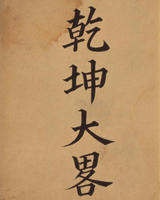 乾坤大畧